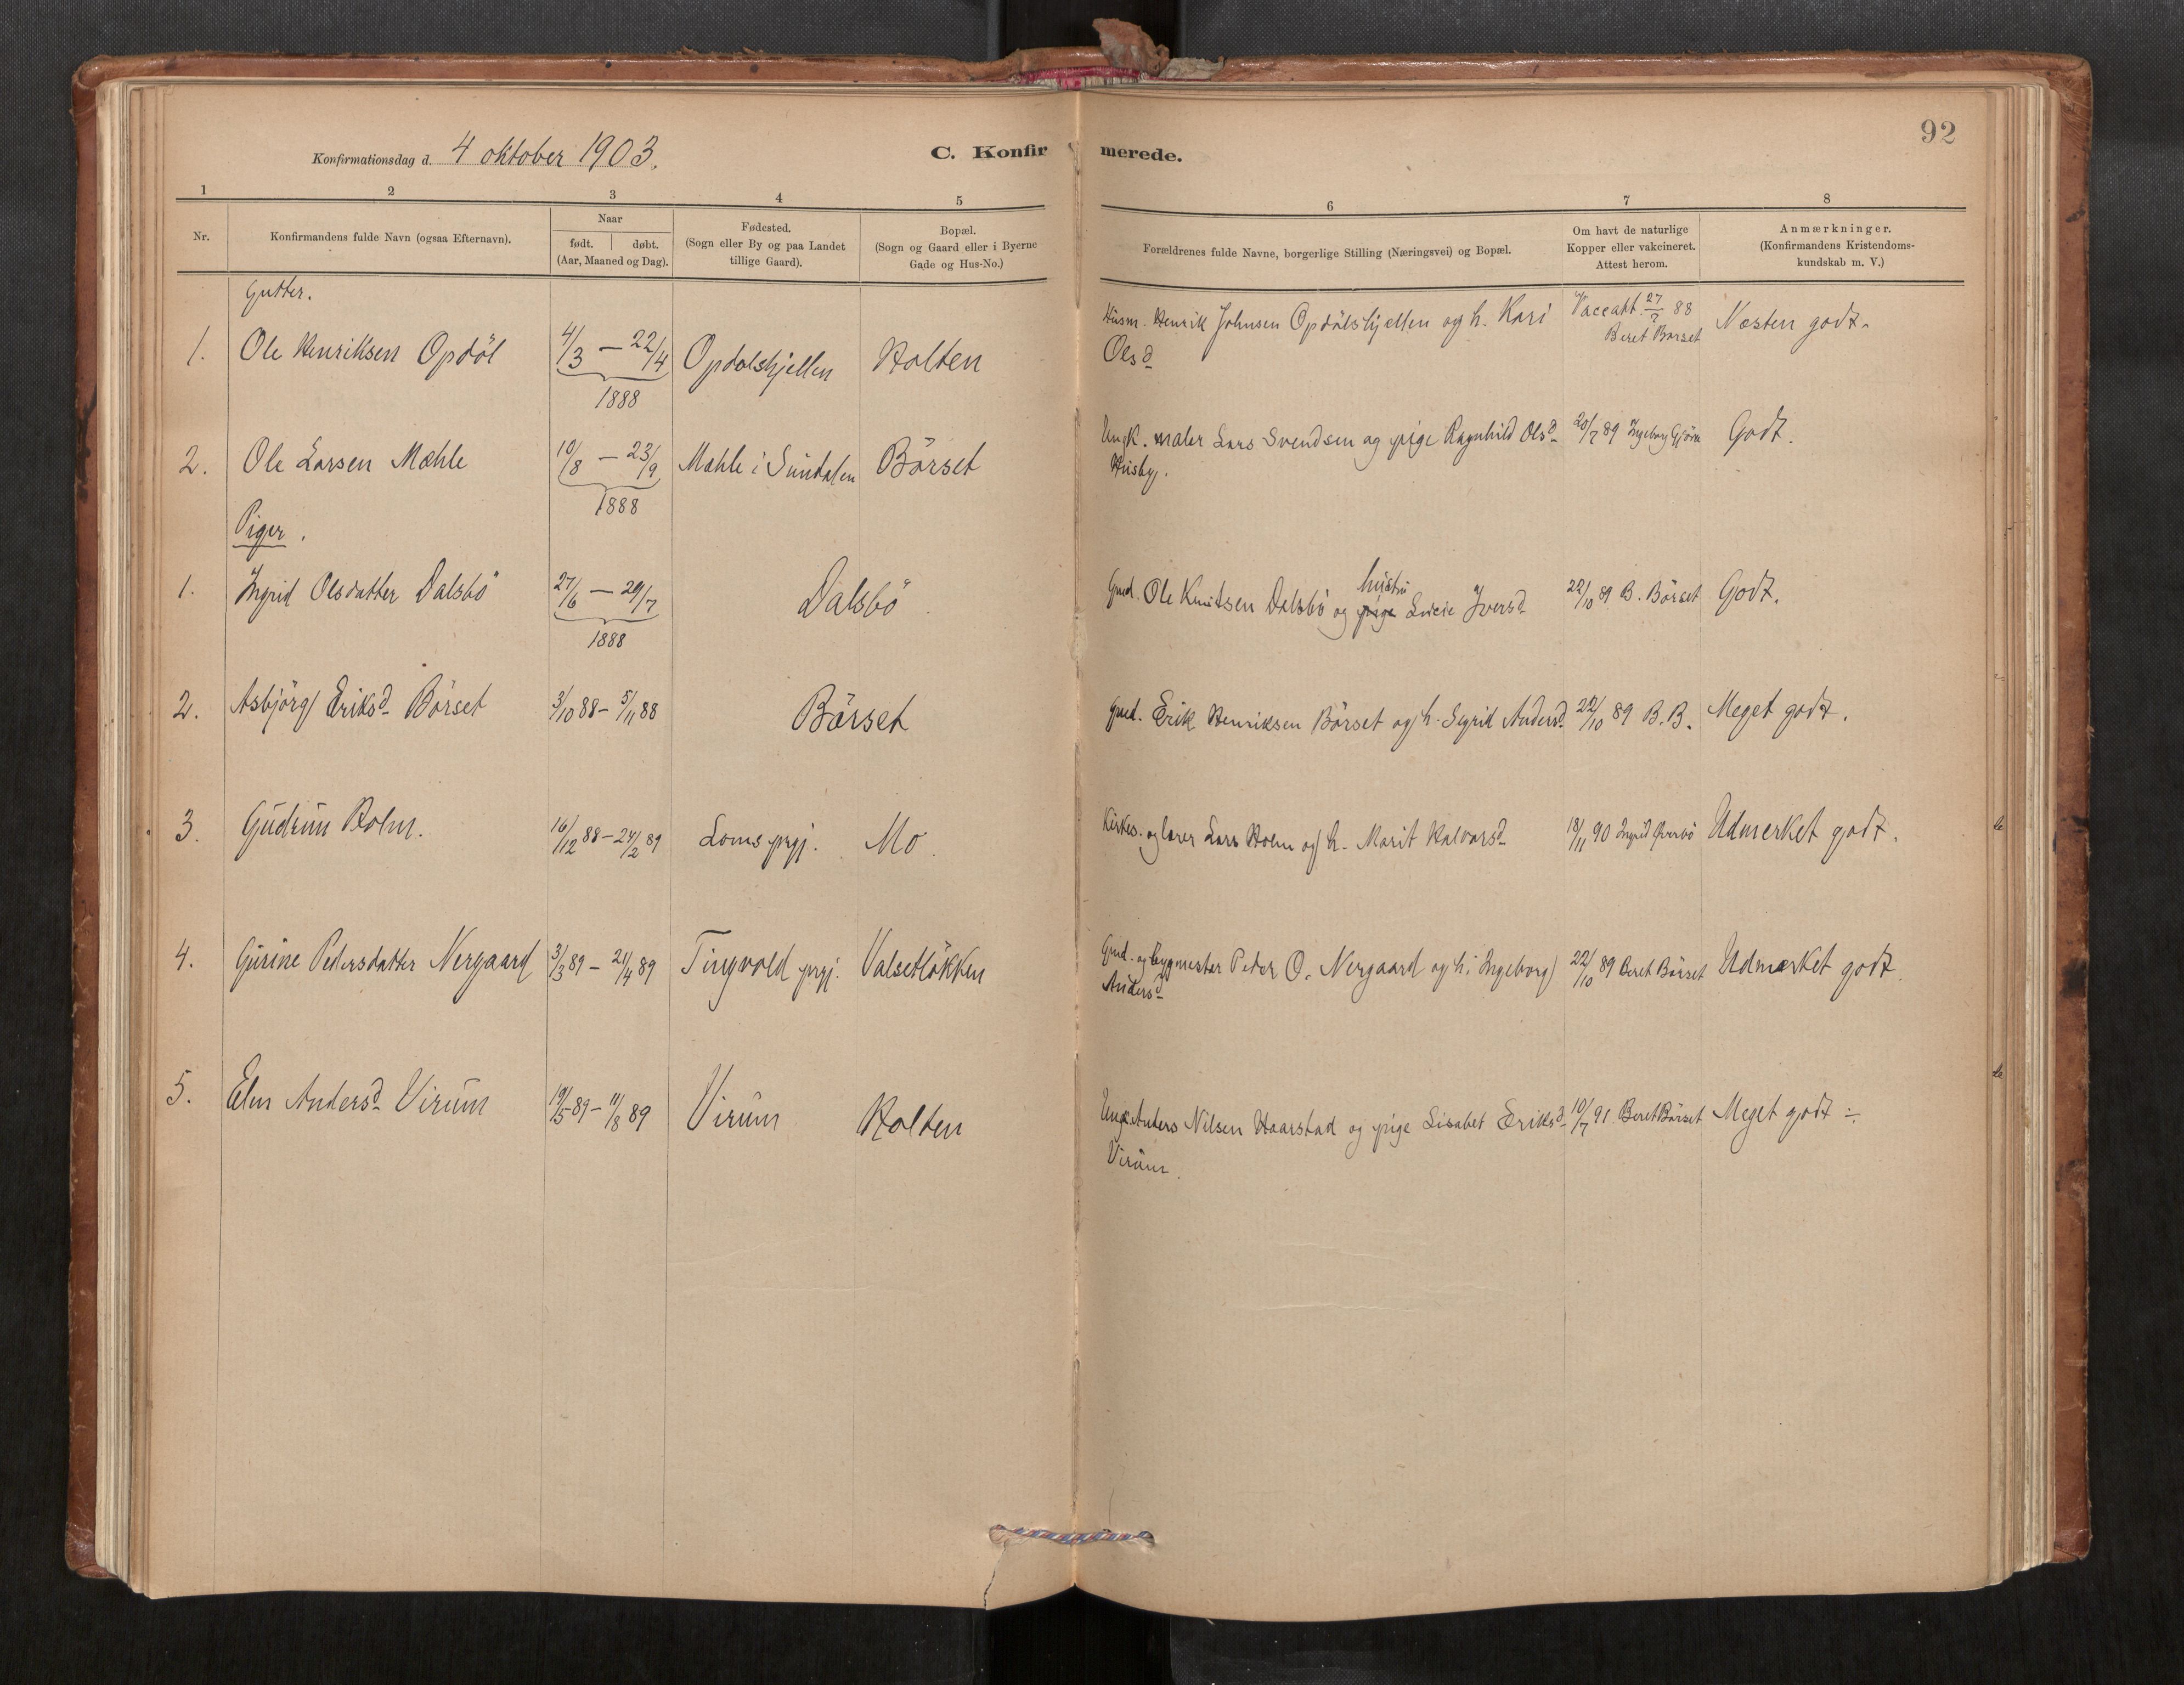 92
Konfirmationsdag d. 4 oktober 1903.
C. Konfirmerede.
1 2 3 4 5 6 7 8
Nr.
Konfirmandens fulde Navn (ogsaa Efternavn).
Naar
født. | døbt.
(Aar, Maaned og Dag).
Fødested.
(Sogn eller By og paa Landet
tillige Gaard).
Bopæl.
(Sogn og Gaard eller i Byerne
Gade og Hus-No.)
Forældrenes fulde Navne, borgerlige Stilling (Næringsvei) og Bopæl.
Om havt de naturlige
Kopper eller vakcineret.
Attest herom.
Anmærkninger.
(Konfirmandens Kristendoms-
kundskab m. V.)
Gutter.
1. Ole Henriksen Opdöl 4/3 — 22/4 Opdalskjellen Holten Husm. Henrik Johnsen Opdölskjellen og h. Kari 27/7 88 Næsten godt.
1888 Olsd Beret Børset
2. Ole Larsen Mæhle 10/8 — 23/9 Mæhle i Sundalen Börset Ungk. maler Lars Svendsen og pige Ragnhild Olsd 20/7 89 Ingeborg Godt.
1888 Husby.
Piger.
1. Ingrid Olsdatter Dalsbö 27/6 — 29/7 Dalsbö Gmd. Ole Knutsen Dalsbö og pige hustru Iversd 22/10 89 B. Börset Godt.
1888
2. Asbjörg Eriksd Börset 3/10 88 - 5/11 88 Börset Gmd. Erik Henriksen Börset og h. Sigrid Andersd 22/10 89 B. B. Meget godt.
3. Gudrun Holm. 16/12 88 - 24/2 89 Loms prgj. Mo Kirkes. og lærer Lars Holm og h. Marit Halvorsd 18/11 90 Ingrid Udmerket godt.
4. Gurine Pedersdatter Nergaard 3/3 89 - 21/4 89 Tingvold prgj. Valsetlökken Gmd. og bygmester Peder O. Nergaard og h. Ingeborg 22/10 89 Beret Börset Udmærket godt
Andersd
5. Elen Andersd Virum 19/5 89 - 11/8 89 Virum Holten Ungk. Anders Nilsen Haarstad og pige Lisabet Eriksd 10/7 91 Beret Börset Meget godt ÷
Virum.